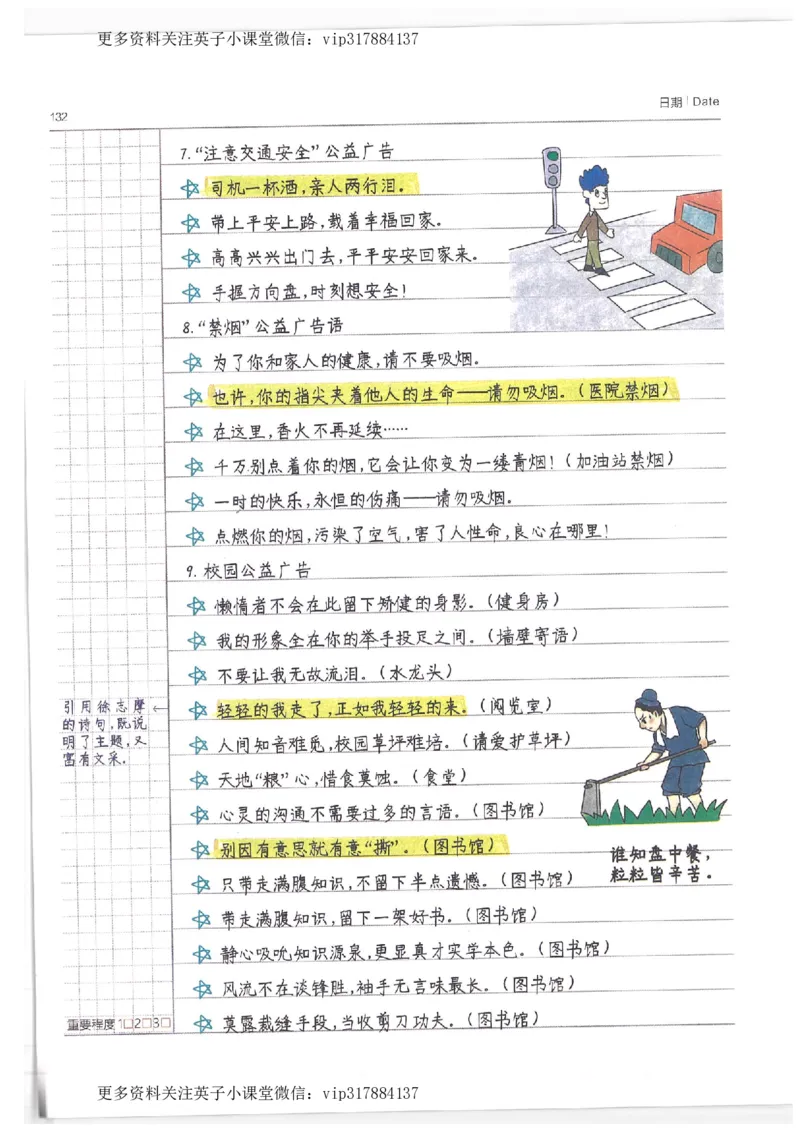 更多资料关注英子小课堂微信：vip317884137
日期 Date
132
7.“注意交通安全”公益广告
司机一杯酒，亲人两行泪。
带上平安上路，载着幸福回家。
高高兴兴出门去，平平安安回家来。
手握方向盘，时刻想安全！
8.“禁烟”公益广告语
为了你和家人的健康，请不要吸烟。
也许，你的指尖夹着他人的生命——请勿吸烟。（医院禁烟）
在这里，香火不再延续……
千万别点着你的烟，它会让你变为一缕青烟！（加油站禁烟）
一时的快乐，永恒的伤痛——请勿吸烟。
点燃你的烟，污染了空气，害了人性命，良心在哪里！
9.校园公益广告
懒惰者不会在此留下矫健的身影。（健身房）
我的形象全在你的举手投足之间。（墙壁寄语）
不要让我无故流泪。（水龙头）
轻轻的我走了，正如我轻轻的来。（阅览室）
引用徐志摩
的诗句，既说
明了主题，又
富有文采。
人间知音难觅，校园草坪难培。（请爱护草坪）
天地“粮”心，惜食莫蚀。（食堂）
心灵的沟通不需要过多的言语。（图书馆）
别因有意思就有意“撕”。（图书馆）
只带走满腹知识，不留下半点遗憾。（图书馆）
谁知盘中餐，
粒粒皆辛苦。
带走满腹知识，留下一架好书。（图书馆）
静心吸吮知识源泉，更显真才实学本色。（图书馆）
风流不在谈锋胜，袖手无言味最长。（图书馆）
莫露裁缝手段，当收剪刀功夫。（图书馆）
重要程度1□2□3□
更多资料关注英子小课堂微信：vip317884137